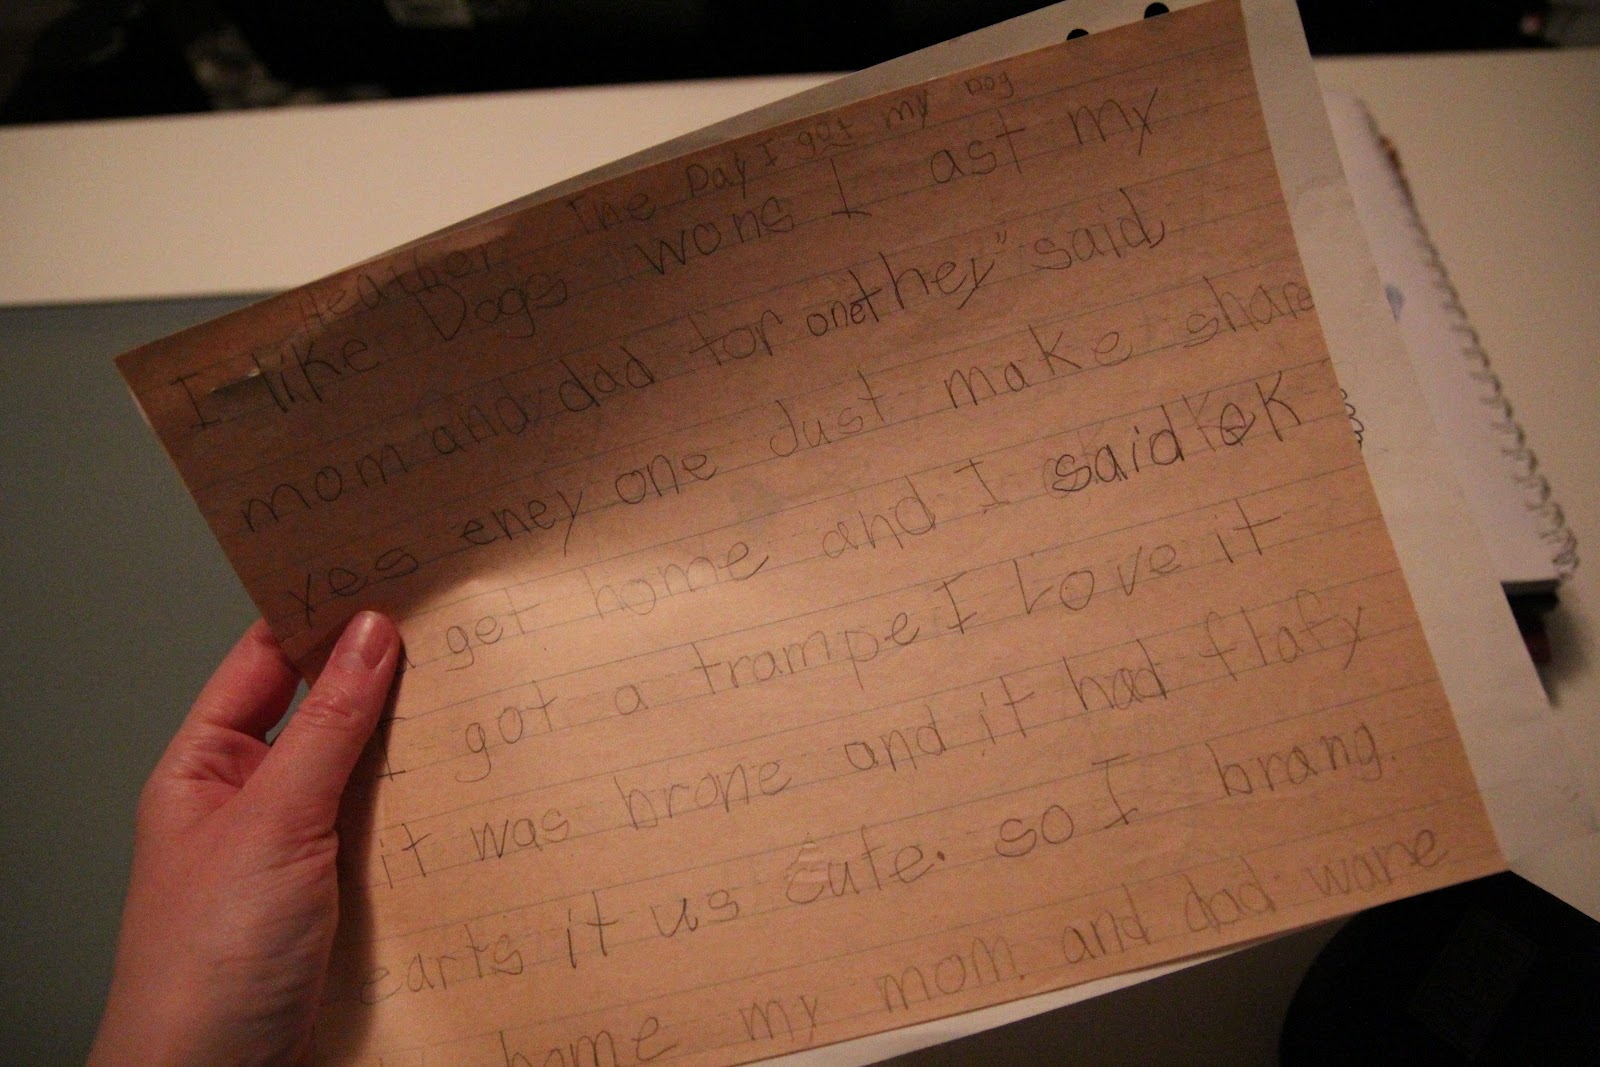 Heather The Day I got my Dog
I like Dogs wons I ast my
mom and dad for one they" said
yes eney one Just make share
get home and I said ok
I got a trampe I Love it
it was brone and it had flafy
earts it us cute. so I brang.
home my mom. and dad ware